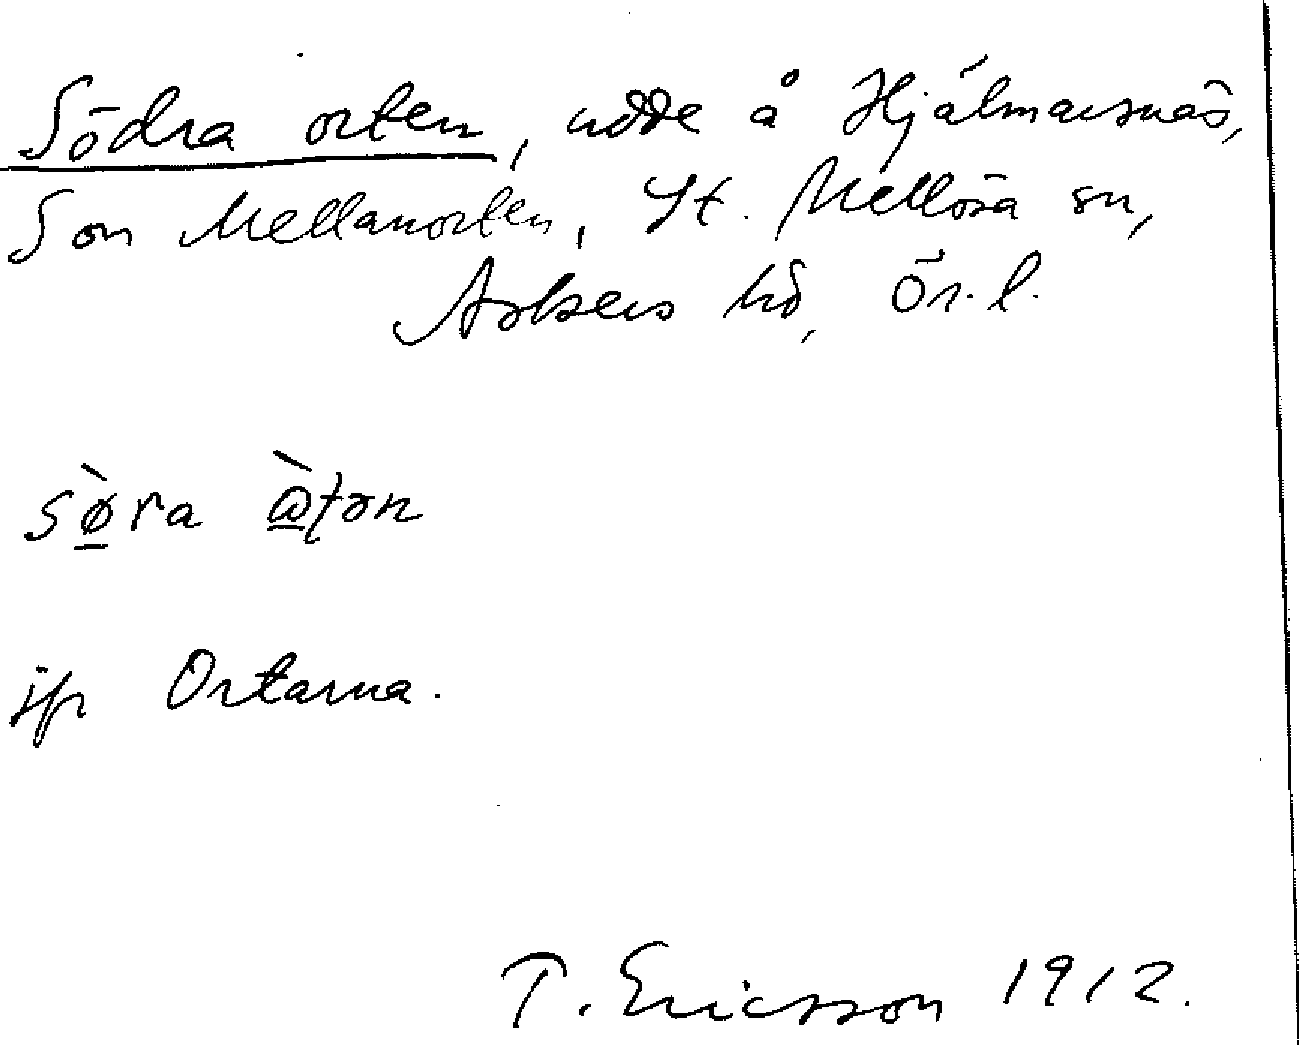 Södra orten, udde å Hjälmarsnäs,
S om Mellanorten, St. Mellösa sn,
Askers hd, Ör. l.
sø̀ra ɷ̀ʈən
jfr Ortarna.
T. Ericsson 1912.